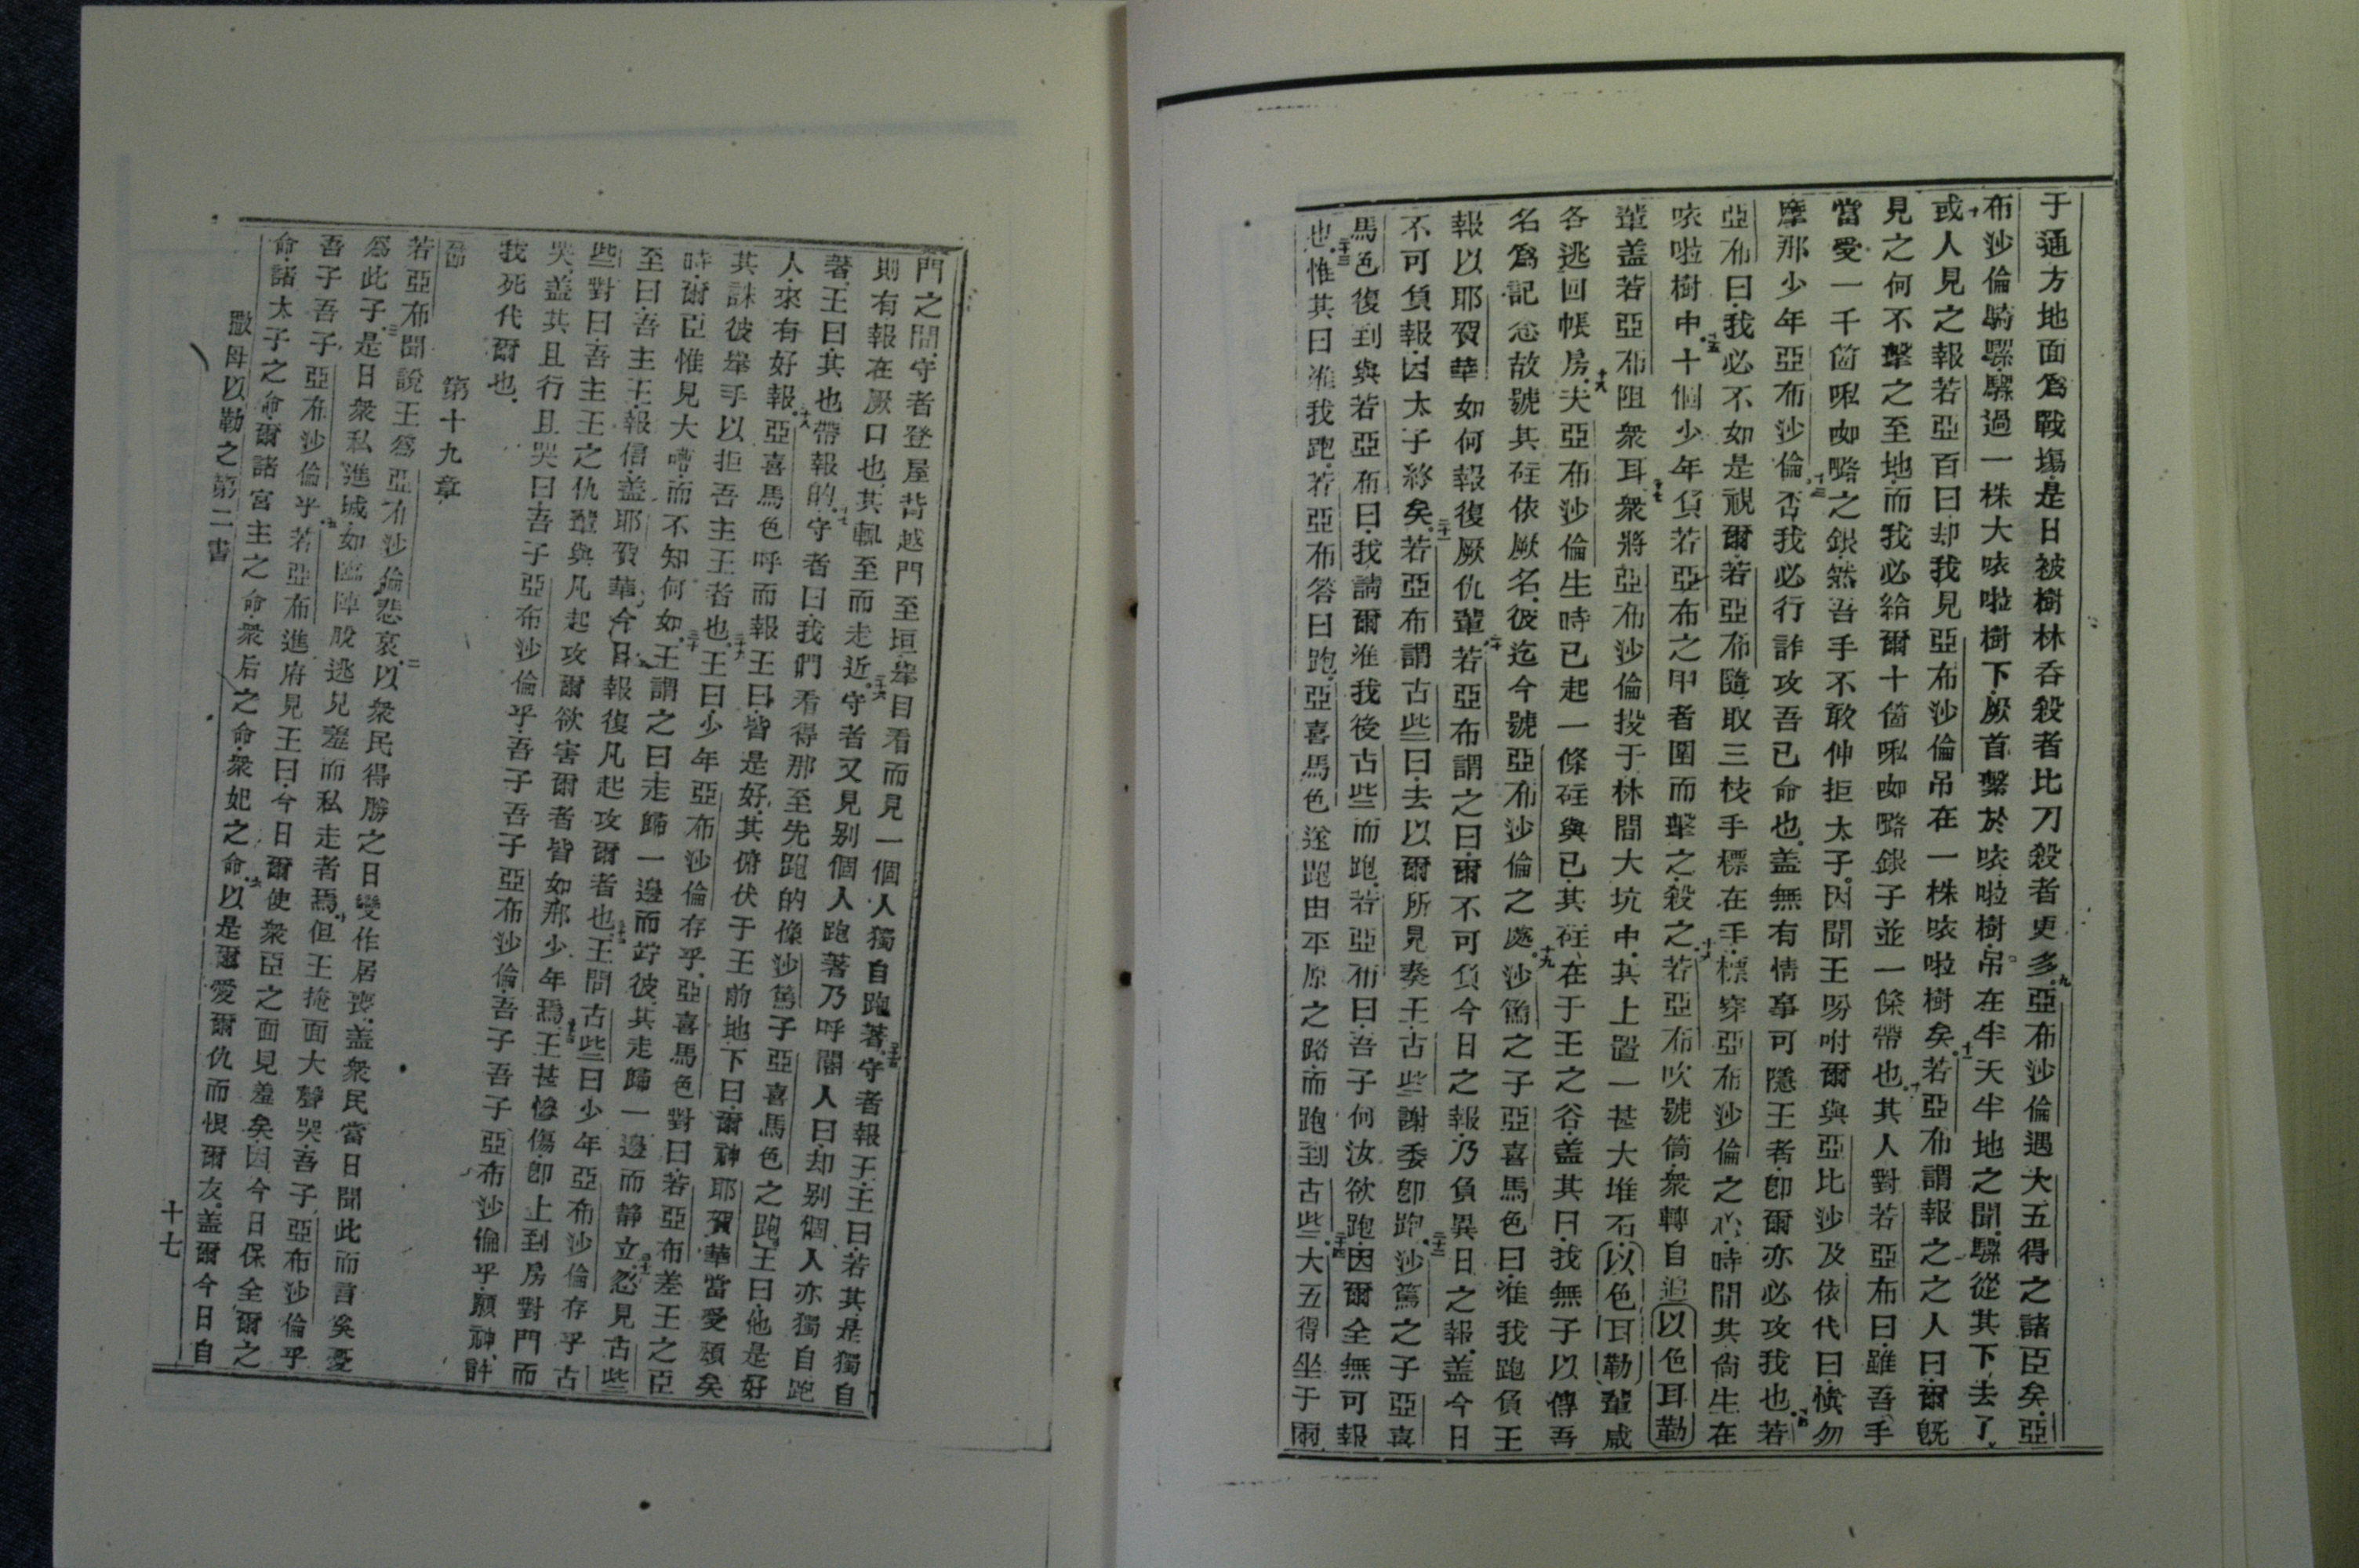 于通方地面爲戰塲是日被樹林呑殺者比刀殺者更多九亞布沙倫遇大五得之諸臣矣亞
布沙倫騎騾騾過一株大咳啦樹下厥首繫於咳啦樹吊在半天半地之間騾從其下去了
十或人見之報若亞百曰却我見亞布沙倫吊在一株咳啦樹矣十一若亞布謂報之之人曰爾旣
見之何不擊之至地而我必給爾十箇𠹌㗎㗉銀子並一條帶也十二其人對若亞布曰雖吾手
當受一千箇𠹌㗎㗉之銀然吾手不敢伸拒太子因聞王吩咐爾與亞比沙及依代曰愼勿
摩那少年亞布沙倫十三否我必行詐攻吾已命也盖無有情事可隱王者卽爾亦必攻我也十四若
亞布曰我必不如是視爾若亞布隨取三枝手標在手標穿亞布沙倫之心時間其尙生在
咳啦樹中十五十個少年負若亞布之甲者圍而擊之殺之十六若亞布吹號筒衆轉自追以色耳勒
輩盖若亞布阻衆耳十七衆將亞布沙倫投于林間大坑中其上置一甚大堆石以色耳勒輩咸
各逃回帳房十八夫亞布沙倫生時已起一條砫與己其砫在于王之谷盖其曰我無子以傳吾
名爲記念故號其砫依厥名彼迄今號亞布沙倫之處十九沙篤之子亞喜馬色曰准我跑負王
報以耶賀華如何報復厥仇輩二十若亞布謂之曰爾不可負今日之報乃負異日之報盖今日
不可負報因太子終矣二十一若亞布謂古些曰去以爾所見奏王古些謝委卽跑二十二沙篤之子亞喜
馬色復到與若亞布曰我請爾准我後古些而跑若亞布曰吾子何汝欲跑因爾全無可報
也二十三惟其曰准我跑若亞布答曰跑亞喜馬色遂跑由平原之路而跑到古些二十四大五得坐于兩
門之間守者登屋背越門至垣舉目看而見一個人獨自跑著二十五守者報王王曰若其是獨自
則有報在厥口也其輒至而走近二十六守者又見別個人跑著乃呼閽人曰却別個人亦獨自跑
著王曰其也帶報的二十七守者曰我們看得那至先跑的像沙篤子亞喜馬色之跑王曰他是好
人來有好報二十八亞喜馬色呼而報王曰皆是好其俯伏于王前地下曰爾神耶賀華當受頌矣
其誅彼舉手以拒吾主王者也二十九王曰少年亞布沙倫存乎亞喜馬色對曰若亞布差王之臣
時爾臣惟見大嘈而不知何如三十王謂之曰走歸一邊而竚彼其走歸一邊而静立三十一忽見古些
至曰吾主王報信盖耶賀華今日報復凡起攻爾者也三十二王問古些曰少年亞布沙倫存乎古
些對曰吾主王之仇輩與凡起攻爾欲害爾者皆如那少年焉三十三王甚慘傷卽上到房對門而
哭盖其且行且哭曰吾子亞布沙倫乎吾子吾子亞布沙倫吾子吾子亞布沙倫乎願神許
我死代爾也
第十九章
若亞布聞說王爲亞布沙倫悲哀二以衆民得勝之日變作居喪盖衆民當日聞此而言矣憂
爲此子三是日衆私進城如臨陣脫逃見羞而私走者焉四但王掩面大聲哭吾子亞布沙倫乎
吾子吾子亞布沙倫乎五若亞布進府見王曰今日爾使衆臣之面見羞矣因今日保全爾之
命諸太子之命爾諸宮主之命衆后之命衆妃之命六以是爾愛爾仇而恨爾友盖爾今日自
撒母以勒之第二書
十七